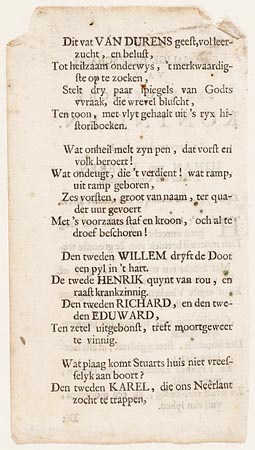 Dit vat VAN DURENS geest, vol leer-
zucht, en belust,
Tot heilzaam onderwys, 't merkwaardig-
ste op te zoeken,
Stelt dry paar spiegels van Godts
wraak, die wrevel bluscht,
Ten toon, met vlyt gehaalt uit 's ryx hi-
storiboeken.
Wat onheil melt zyn pen, dat vorst en
volk beroert!
Wat ondeugt, die 't verdient! wat ramp,
uit ramp geboren,
Zes vorsten, groot van naam, ter qua-
der uur gevoert
Met 's voorzaats staf en kroon, och al te
droef beschoren!
Den tweden WILLEM dryft de Doot
een pyl in 't hart.
De twede HENRIK quynt van rou, en
raast krankzinnig.
Den tweden RICHARD, en den twe-
den EDUWARD,
Ten zetel uitgebonst, treft moortgeweer
te vinnig.
Wat plaag komt Stuarts huis niet vrees-
selyk aan boort?
Den tweden KAREL, die ons Neêrlant
zocht te trappen,